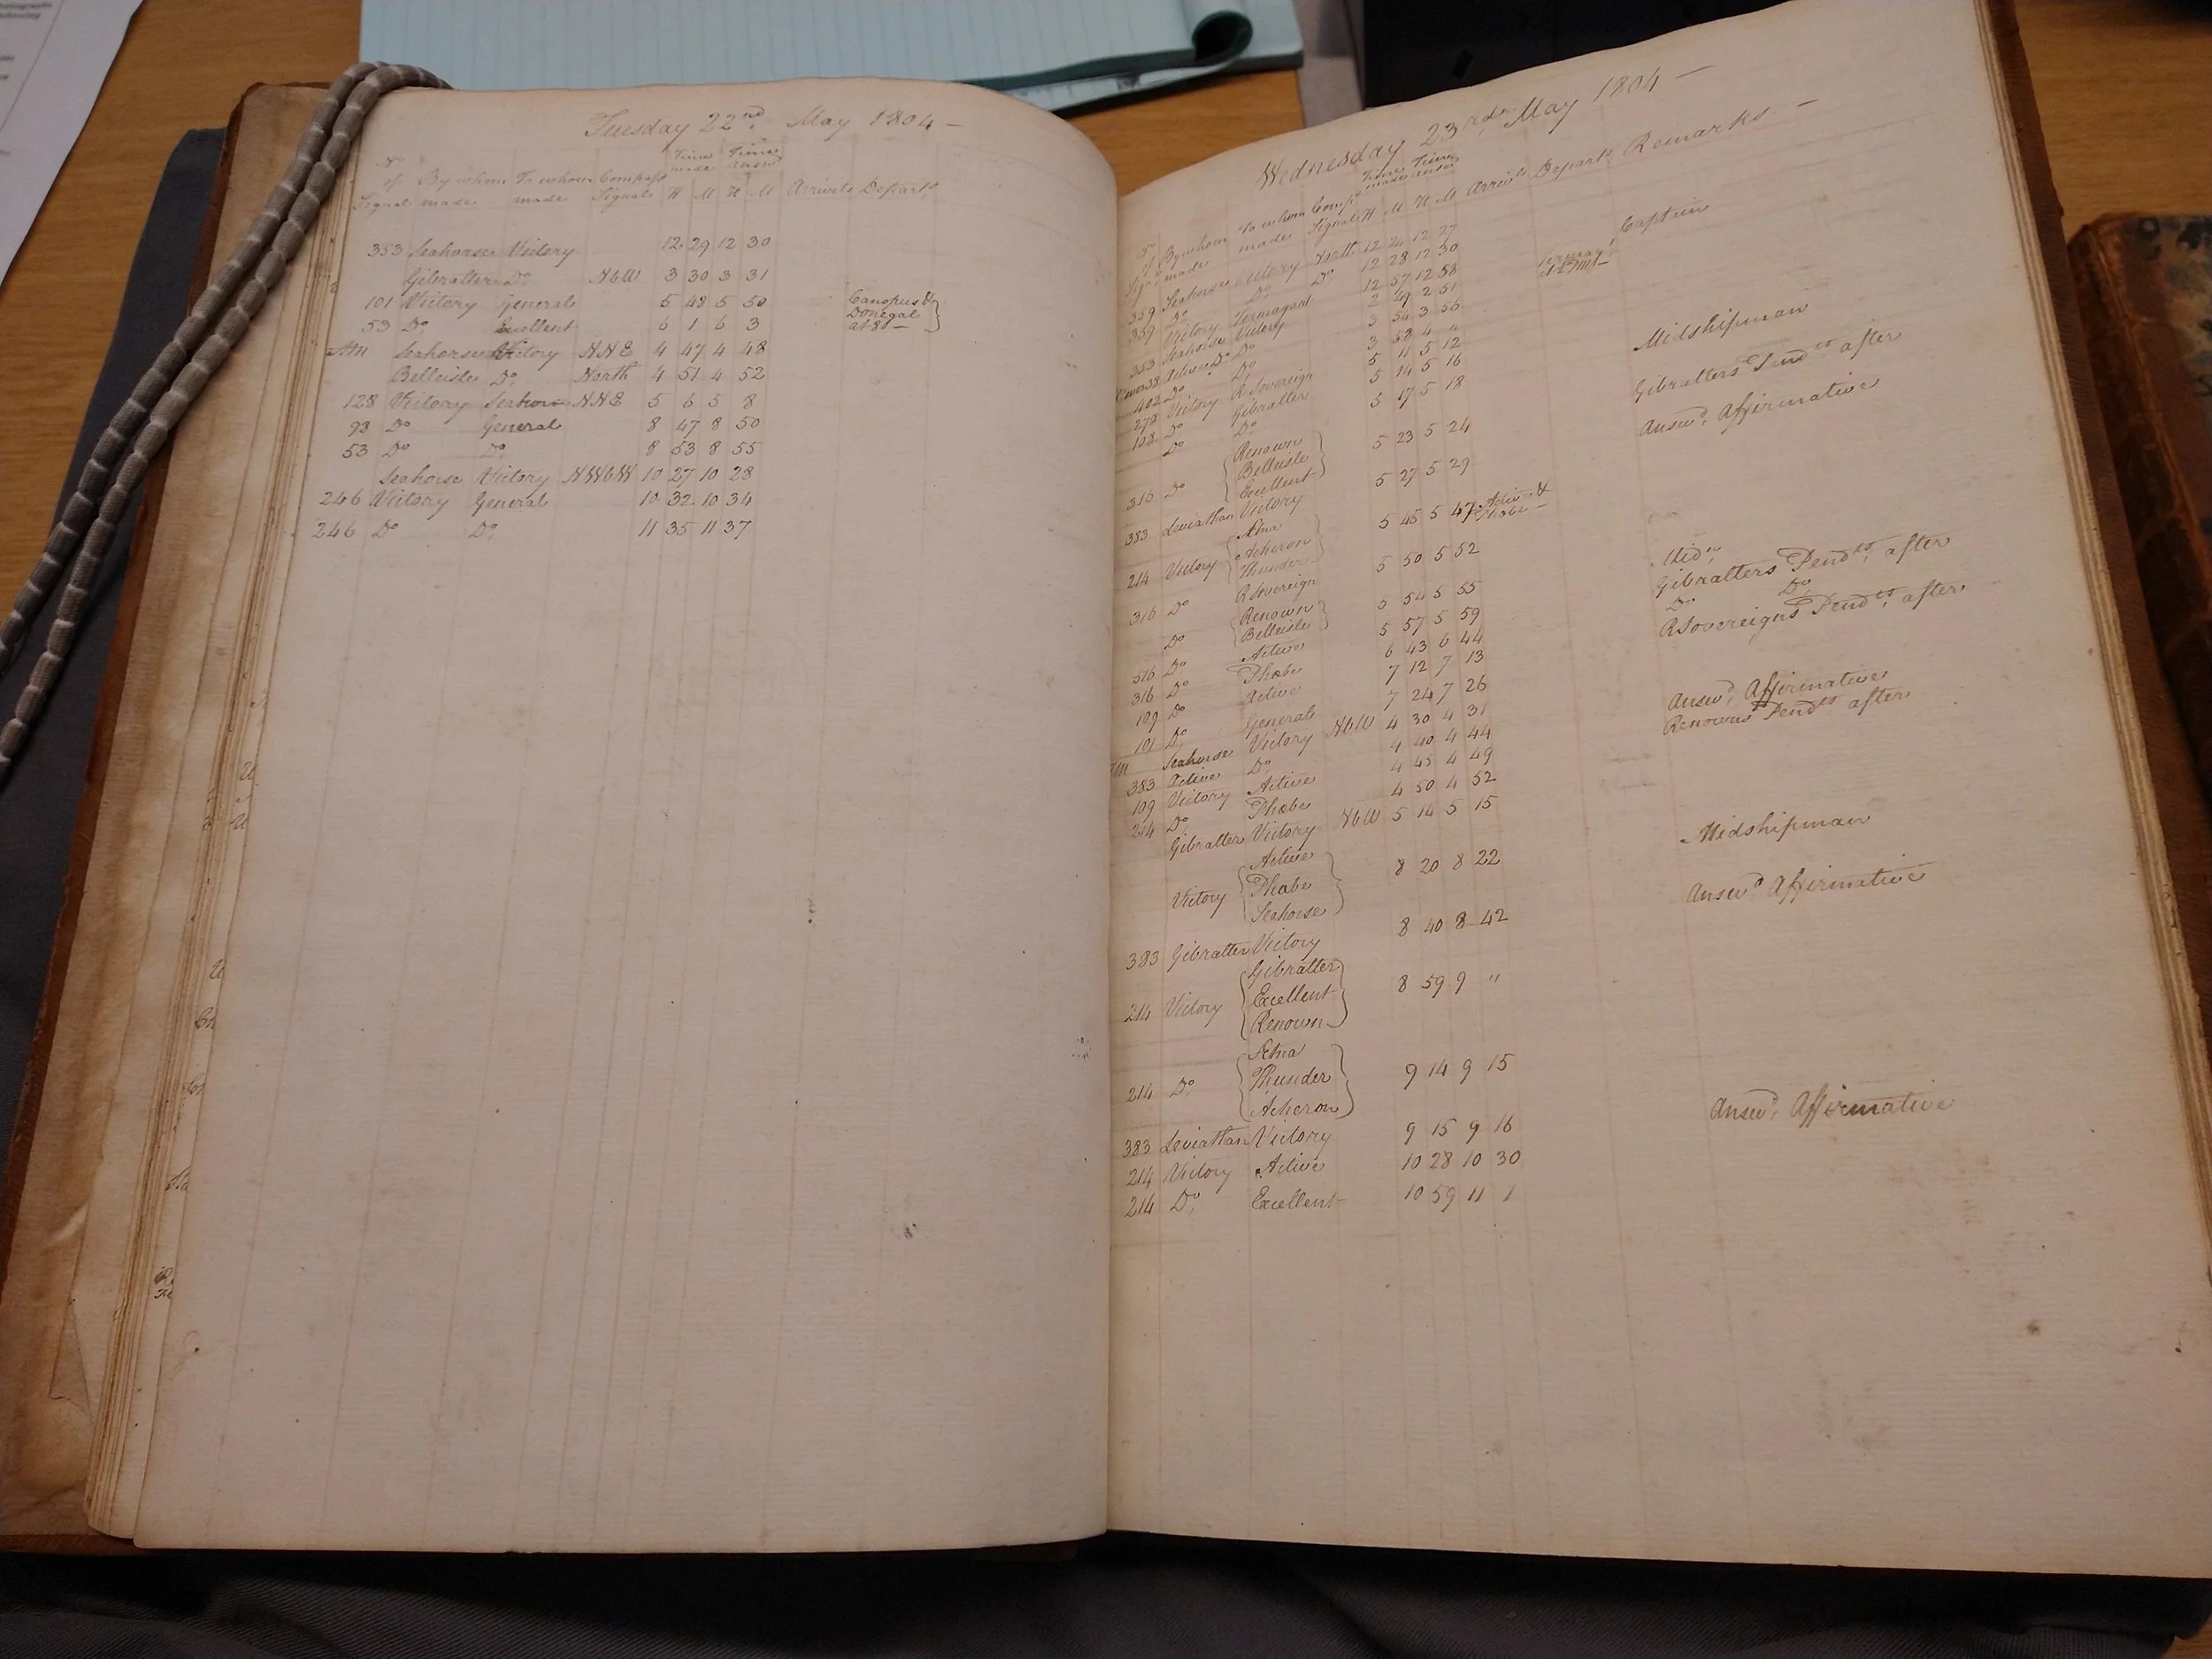 Tuesday 22nd. May 1804 —
No of Signal By whom made To whom made Compass Signal Time made H M Time answd H M Arrivals Departs
353 Seahorse Victory 12 29 12 30
Gibralter Do. NbW 3 30 3 31
101 Victory General 5 48 5 50 Canopus &
Donegal
at 80 —
53 Do. Excellent 6 1 6 3
AM Seahorse Victory NNE 4 47 4 48
Belleisle Do. North 4 51 4 52
128 Victory Seahorse NNE 5 6 5 8
93 Do General 8 47 8 50
53 Do Do. 8 53 8 55
Seahorse Victory NWbW 10 27 10 28
246 Victory General 10 32 10 34
246 Do Do. 11 35 11 37
Wednesday 23rd. May 1804 —
No of Signal By whom made To whom made Comps Signal Time made H M Time answd H M Arrivls Departs Remarks —
359 Seahorse Victory North 12 21 12 27
359 Do Do. Do. 12 28 12 30
Victory Termagant 12 57 12 58 Termagt at 2PM — Captain
353 Seahorse Victory 2 49 2 51
Active Do. Do 3 54 3 56
402 Do Do. 3 58 4 "
278 Victory R Sovereign 5 11 5 12 Midshipman
108 Do Gibralter 5 14 5 16
Do Do. 5 17 5 18 Gibralters Pendts after
316 Do Renown Belleisle Excellent 5 23 5 24
383 Leviathan Victory 5 27 5 29 Answd. Affirmative
214 Victory Ætna Acheron Thunder 5 45 5 47 Active & Phœbe — Midn.
316 Do R Sovereign 5 50 5 52 Gibralters Pendts. after
Do Renown Belleisle 5 54 5 55 Do Do.
316 Do. Active 5 57 5 59 R Sovereigns Pendts. after
316 Do Phœbe 6 43 6 44
109 Do Active 7 12 7 13
101 Do. General 7 24 7 26
AM Seahorse Victory NbW 4 30 4 31
383 Active Do. 4 40 4 44 Answd. Affirmative
109 Victory Active 4 45 4 49 Renowns Pendts after
214 Do. Phœbe 4 50 4 52
Gibralter Victory NbW 5 14 5 15
Victory Active Phœbe Seahorse 8 20 8 22 Midshipman
383 Gibralter Victory 8 40 8 42 Answd. Affirmative
214 Victory Gibralter Excellent Renown 8 59 9 "
214 Do Ætna Thunder Acheron 9 14 9 15
383 Leviathan Victory 9 15 9 16 Answd. Affirmative
214 Victory Active 10 28 10 30
214 Do. Excellent 10 59 11 1